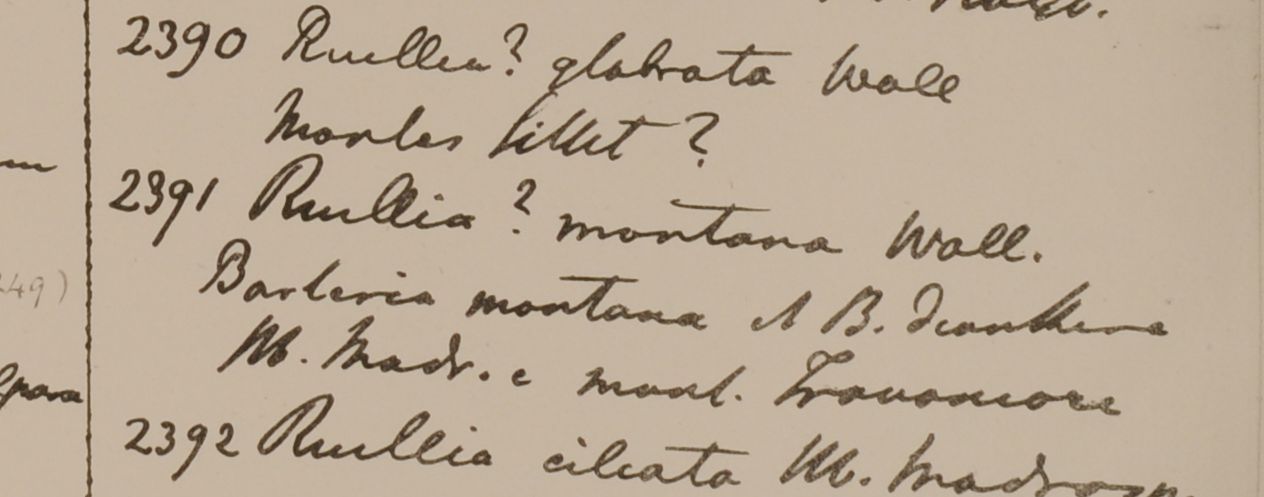 2390 Ruellia? glabrata Wall
Montes Sillet?
2391 Ruellia? montana Wall.
Barleria montana et B.
M. Madr. e mont. Travancore
2392 Ruellia ciliata M. Madrasp
249)